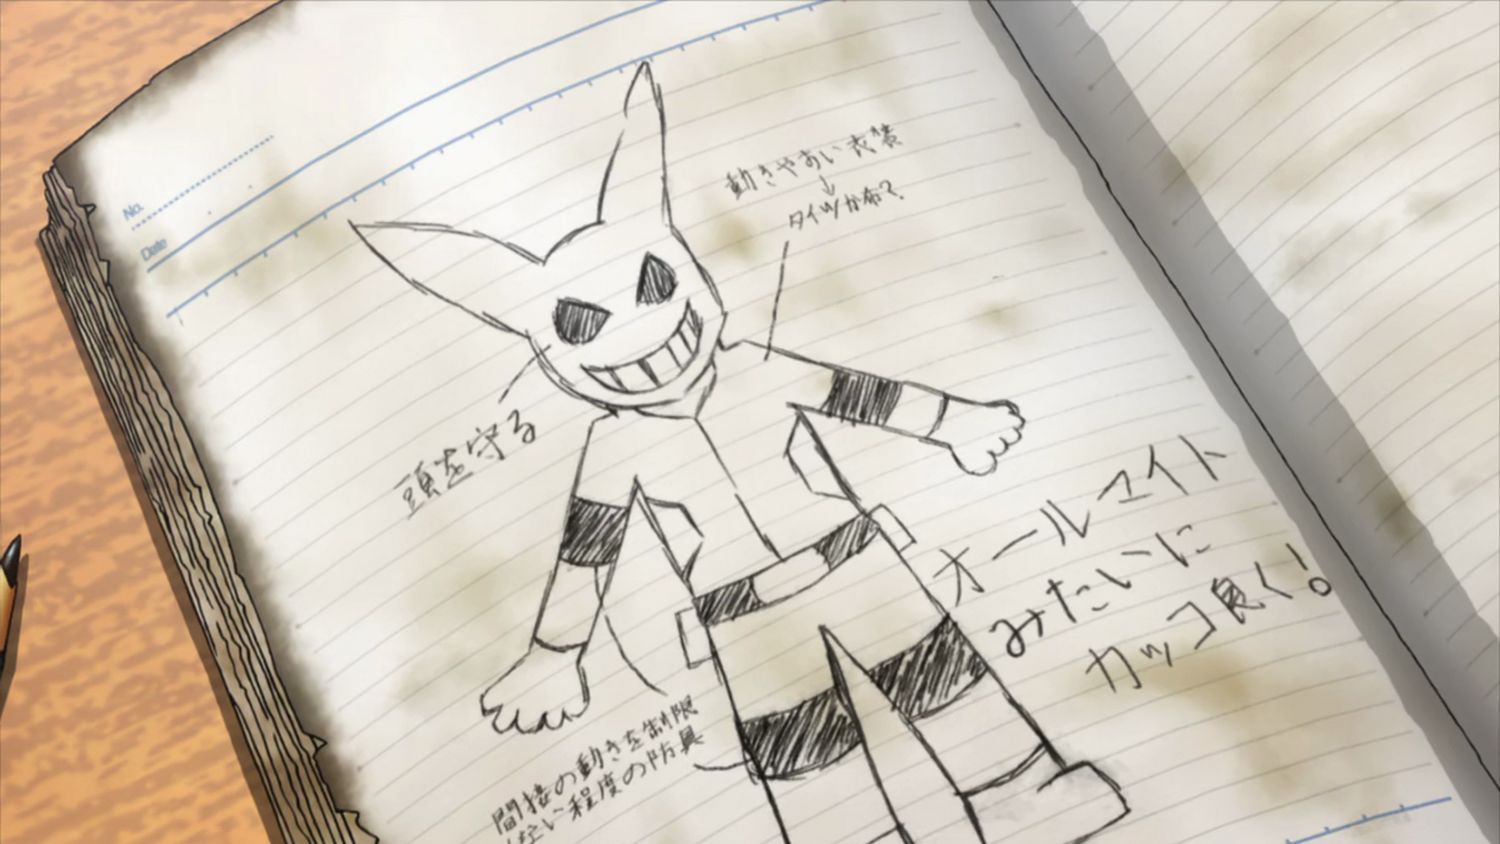 No.
Date
動きやすい衣装
↓
タイツか布?
頭を守る
オールマイト
みたいに
カッコ良く!
間接の動きを制限
しない程度の防具